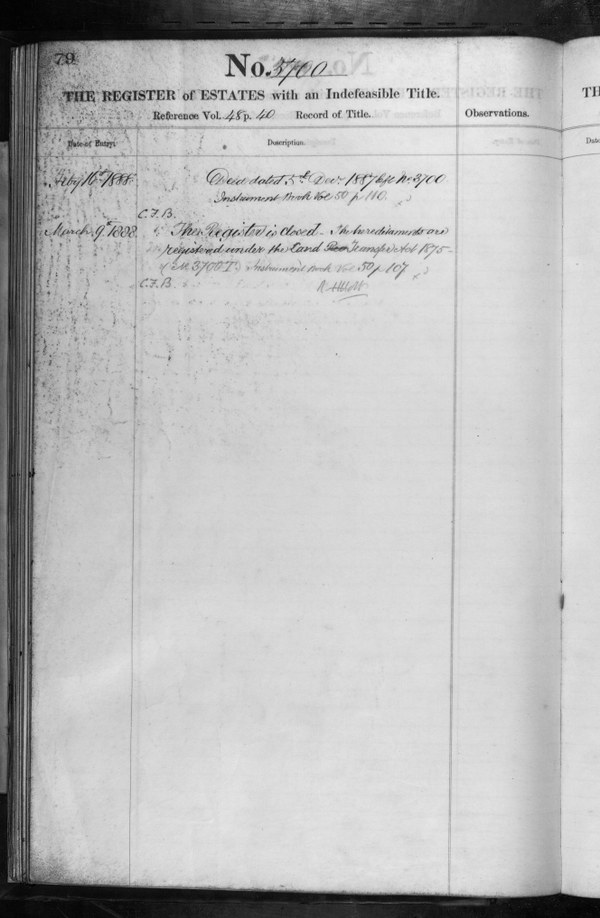 79
No. 3700
THE REGISTER of ESTATES with an Indefeasible Title.
Reference Vol. 48 p. 40 Record of Title.
Observations.
Date of Entry.
Description.
Feby 16th 1888
Deed dated 5th Decr. 1887 No. 3700
Instrument Book Vol 50 p 110.
C.F.B.
March 9th 1888
The Register is closed. The hereditaments are
registered under the Land Transfer Act 1875 -
3700 T. Instrument Book Vol 50 p 107
C.F.B.
TH
Date